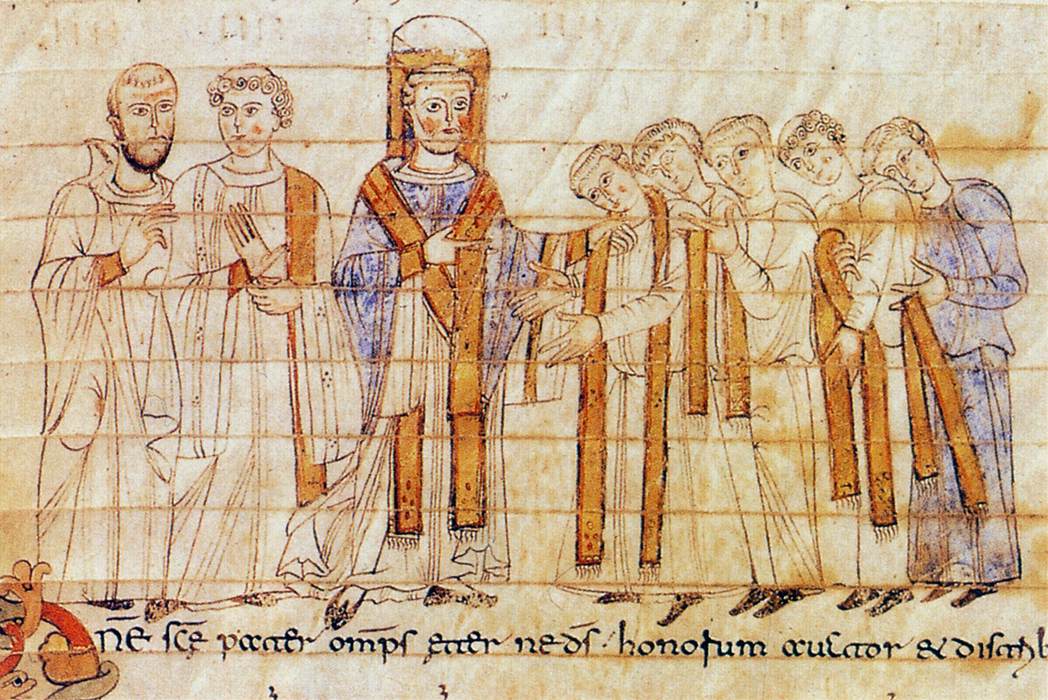 nē scē pater omps eter ne ds · honorum auctor & distrib